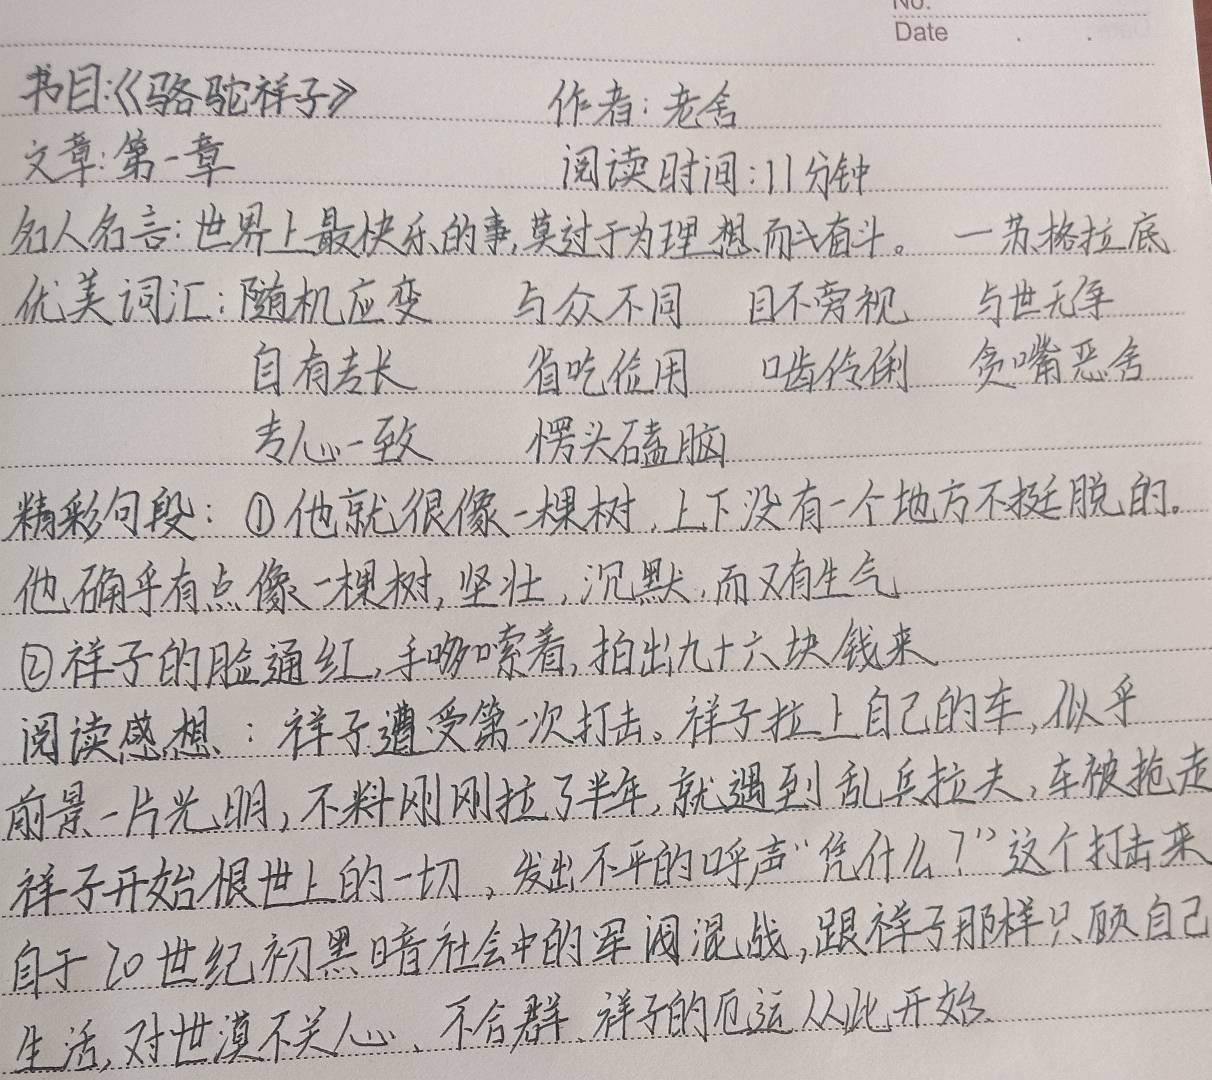 No.
Date
书目:《骆驼祥子》 作者:老舍
文章:第一章 阅读时间:11分钟
名人名言:世界上最快乐的事,莫过于为理想而奋斗。 —苏格拉底
优美词汇:随机应变 与众不同 目不旁视 与世无争
自有专长 省吃俭用 口齿伶俐 贪嘴恶舌
专心一致 愣头磕脑
精彩句段:①他就很像一棵树,上下没有一个地方不挺脱的。
他确乎有点像一棵树,坚壮,沉默,而又有生气
②祥子的脸通红,手哆嗦着,拍出九十六块钱来
阅读感想:祥子遭受第一次打击。祥子拉上自己的车,似乎
前景一片光明,不料刚刚拉了半年,就遇到乱兵拉夫,车被抢走
祥子开始恨世上的一切,发出不平的呼声“凭什么?”这个打击来
自于20世纪初黑暗社会中的军阀混战,跟祥子那样只顾自己
生活,对世漠不关心、不合群、祥子的厄运从此开始